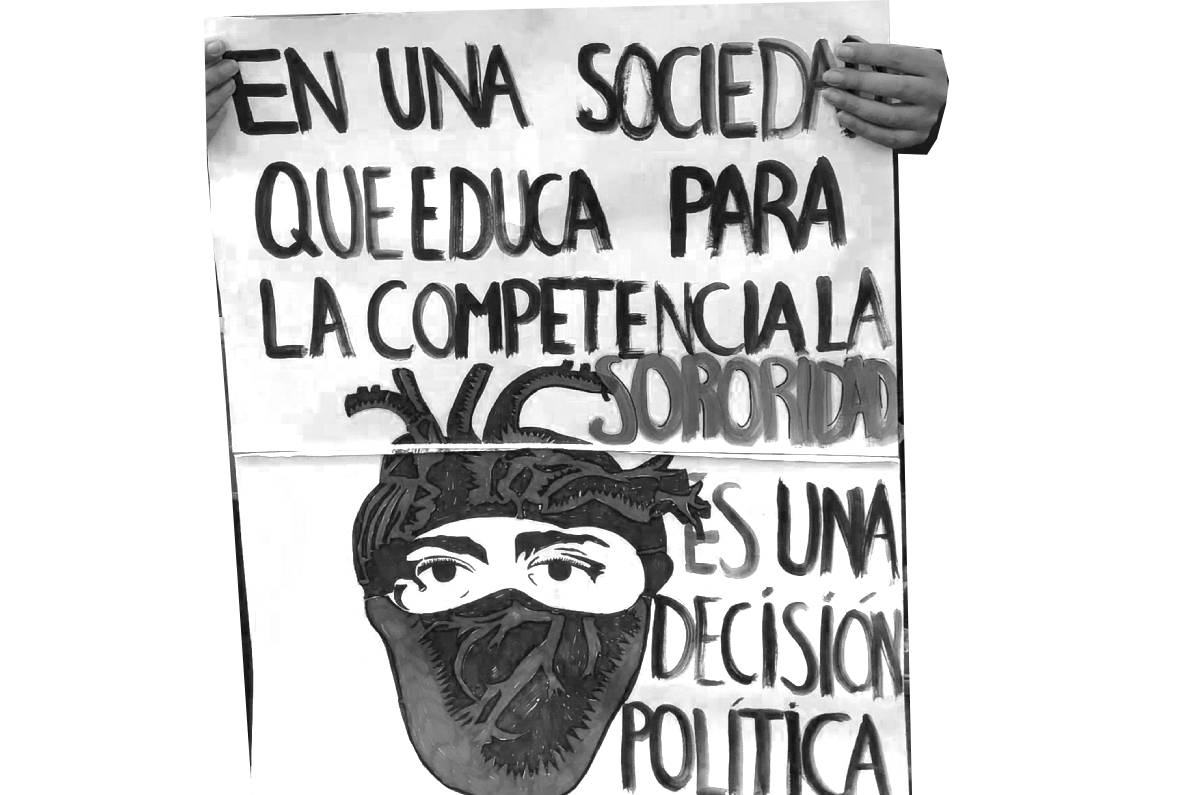 EN UNA SOCIEDA
QUE EDUCA PARA
LA COMPETENCIA LA
SORORIDAD
ES UNA
DECISIÓN
POLÍTICA